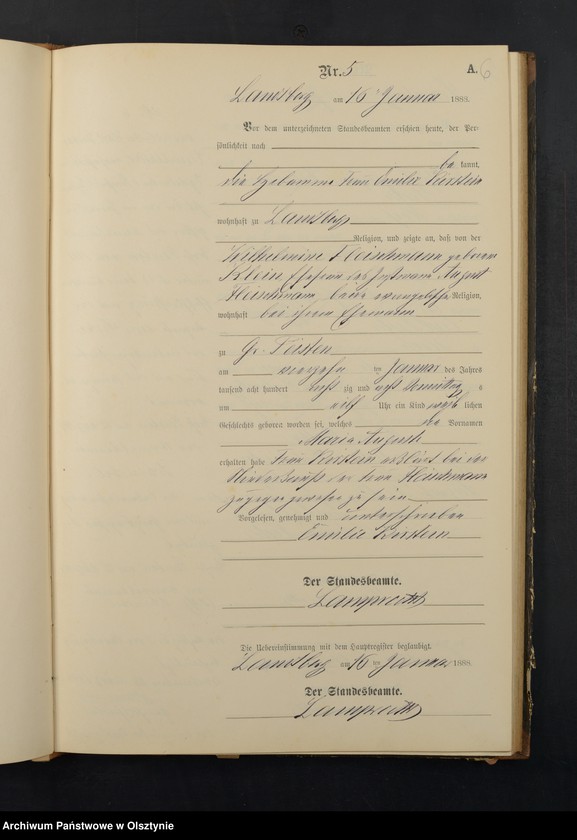 Nr. 5
A. 6
Landsberg am 16 Januar 1888.
Vor dem unterzeichneten Standesbeamten erschien heute, der Per-
sönlichkeit nach
be kannt,
die Hebamme Frau Emilie Kirstein
wohnhaft zu Landsberg
Religion, und zeigte an, daß von der
Wilhelmine Fleischmann geborene
Klein Ehefrau des Instmann August
Fleischmann, beide evangelischer Religion,
wohnhaft bei ihrem Ehemann
zu Gr. Peisten
am vierzehn ten Januar des Jahres
tausend acht hundert acht zig und acht Vormittags
um elf Uhr ein Kind weib lichen
Geschlechts geboren worden sei, welches die Vornamen
Maria Auguste
erhalten habe Frau Kirstein erklärt bei der
Niederkunft der Frau Fleischmann
zugegen gewesen zu sein
Vorgelesen, genehmigt und unterschrieben
Emilie Kirstein
Der Standesbeamte.
Die Uebereinstimmung mit dem Hauptregister beglaubigt.
Landsberg am 16 ten Januar 1888.
Der Standesbeamte.
Archiwum Państwowe w Olsztynie